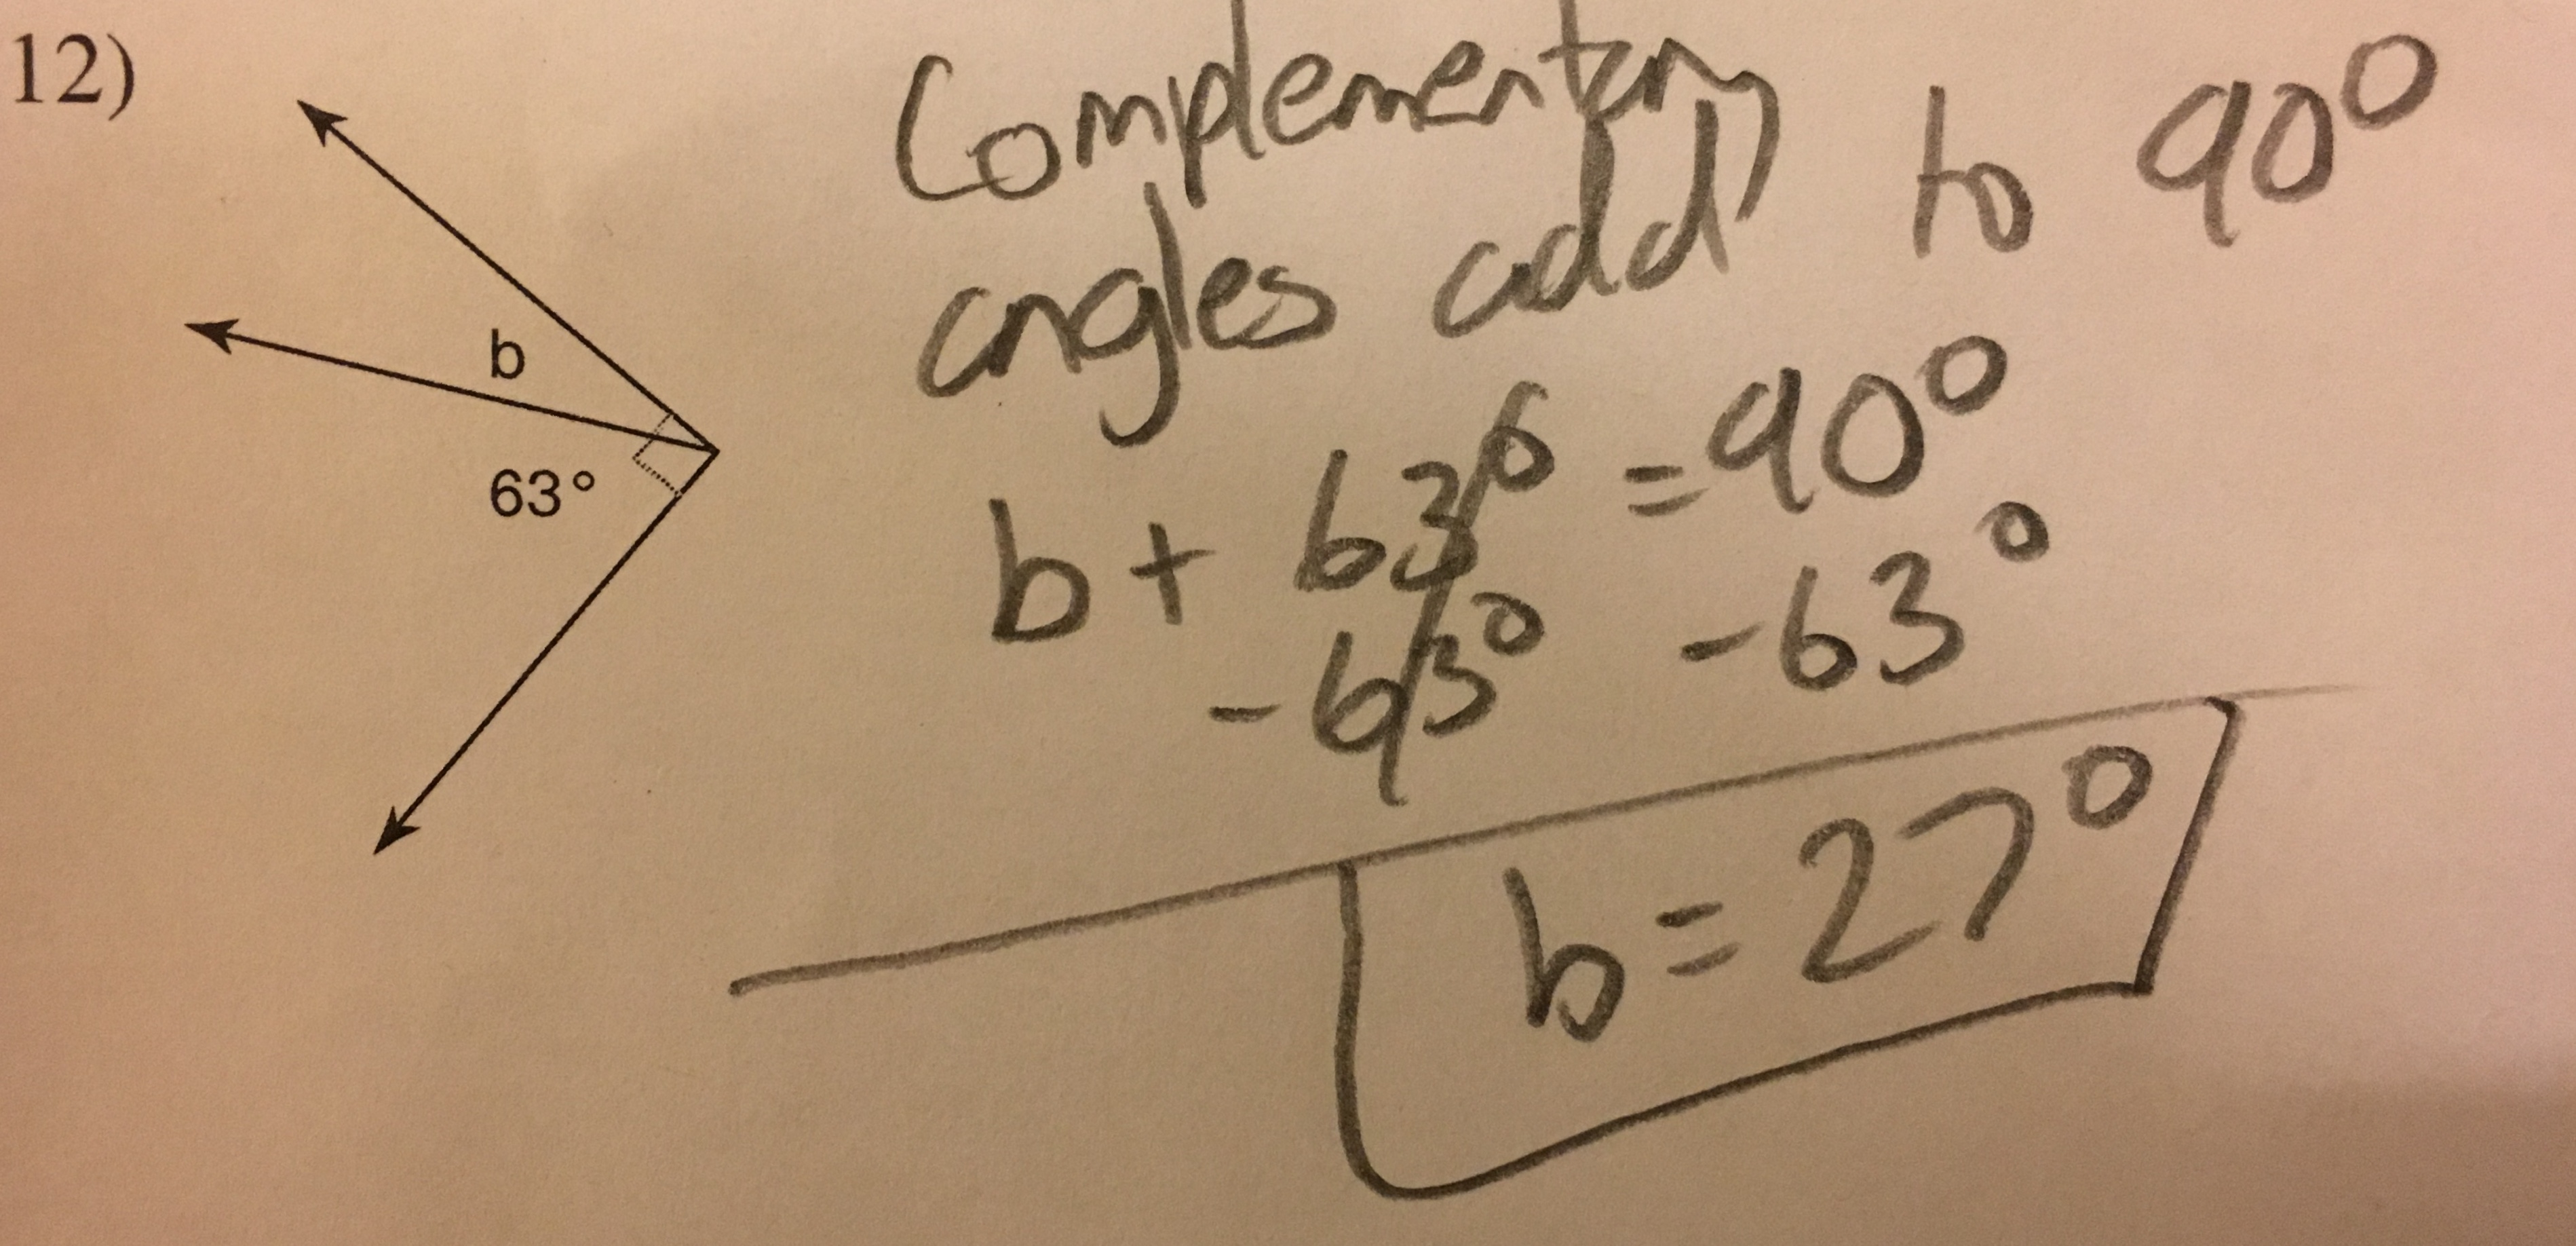 12)
b
63°
Complementary
angles add to 90°
b + 63° = 90°
-63° -63°
b = 27°